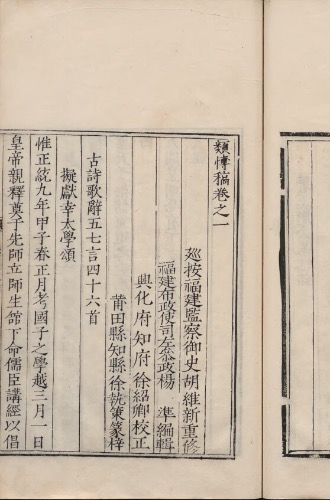 類博稿卷之一
廵按福建監察御史胡維新重修
福建布政使司左叅政楊　準編輯
興化府知府徐紹卿校正
莆田縣知縣徐執策纂梓
古詩歌辭五七言四十六首
擬獻幸太學頌
惟正統九年甲子春正月考國子之學越三月一日
皇帝親釋奠于先師立師生館下命儒臣講經以倡